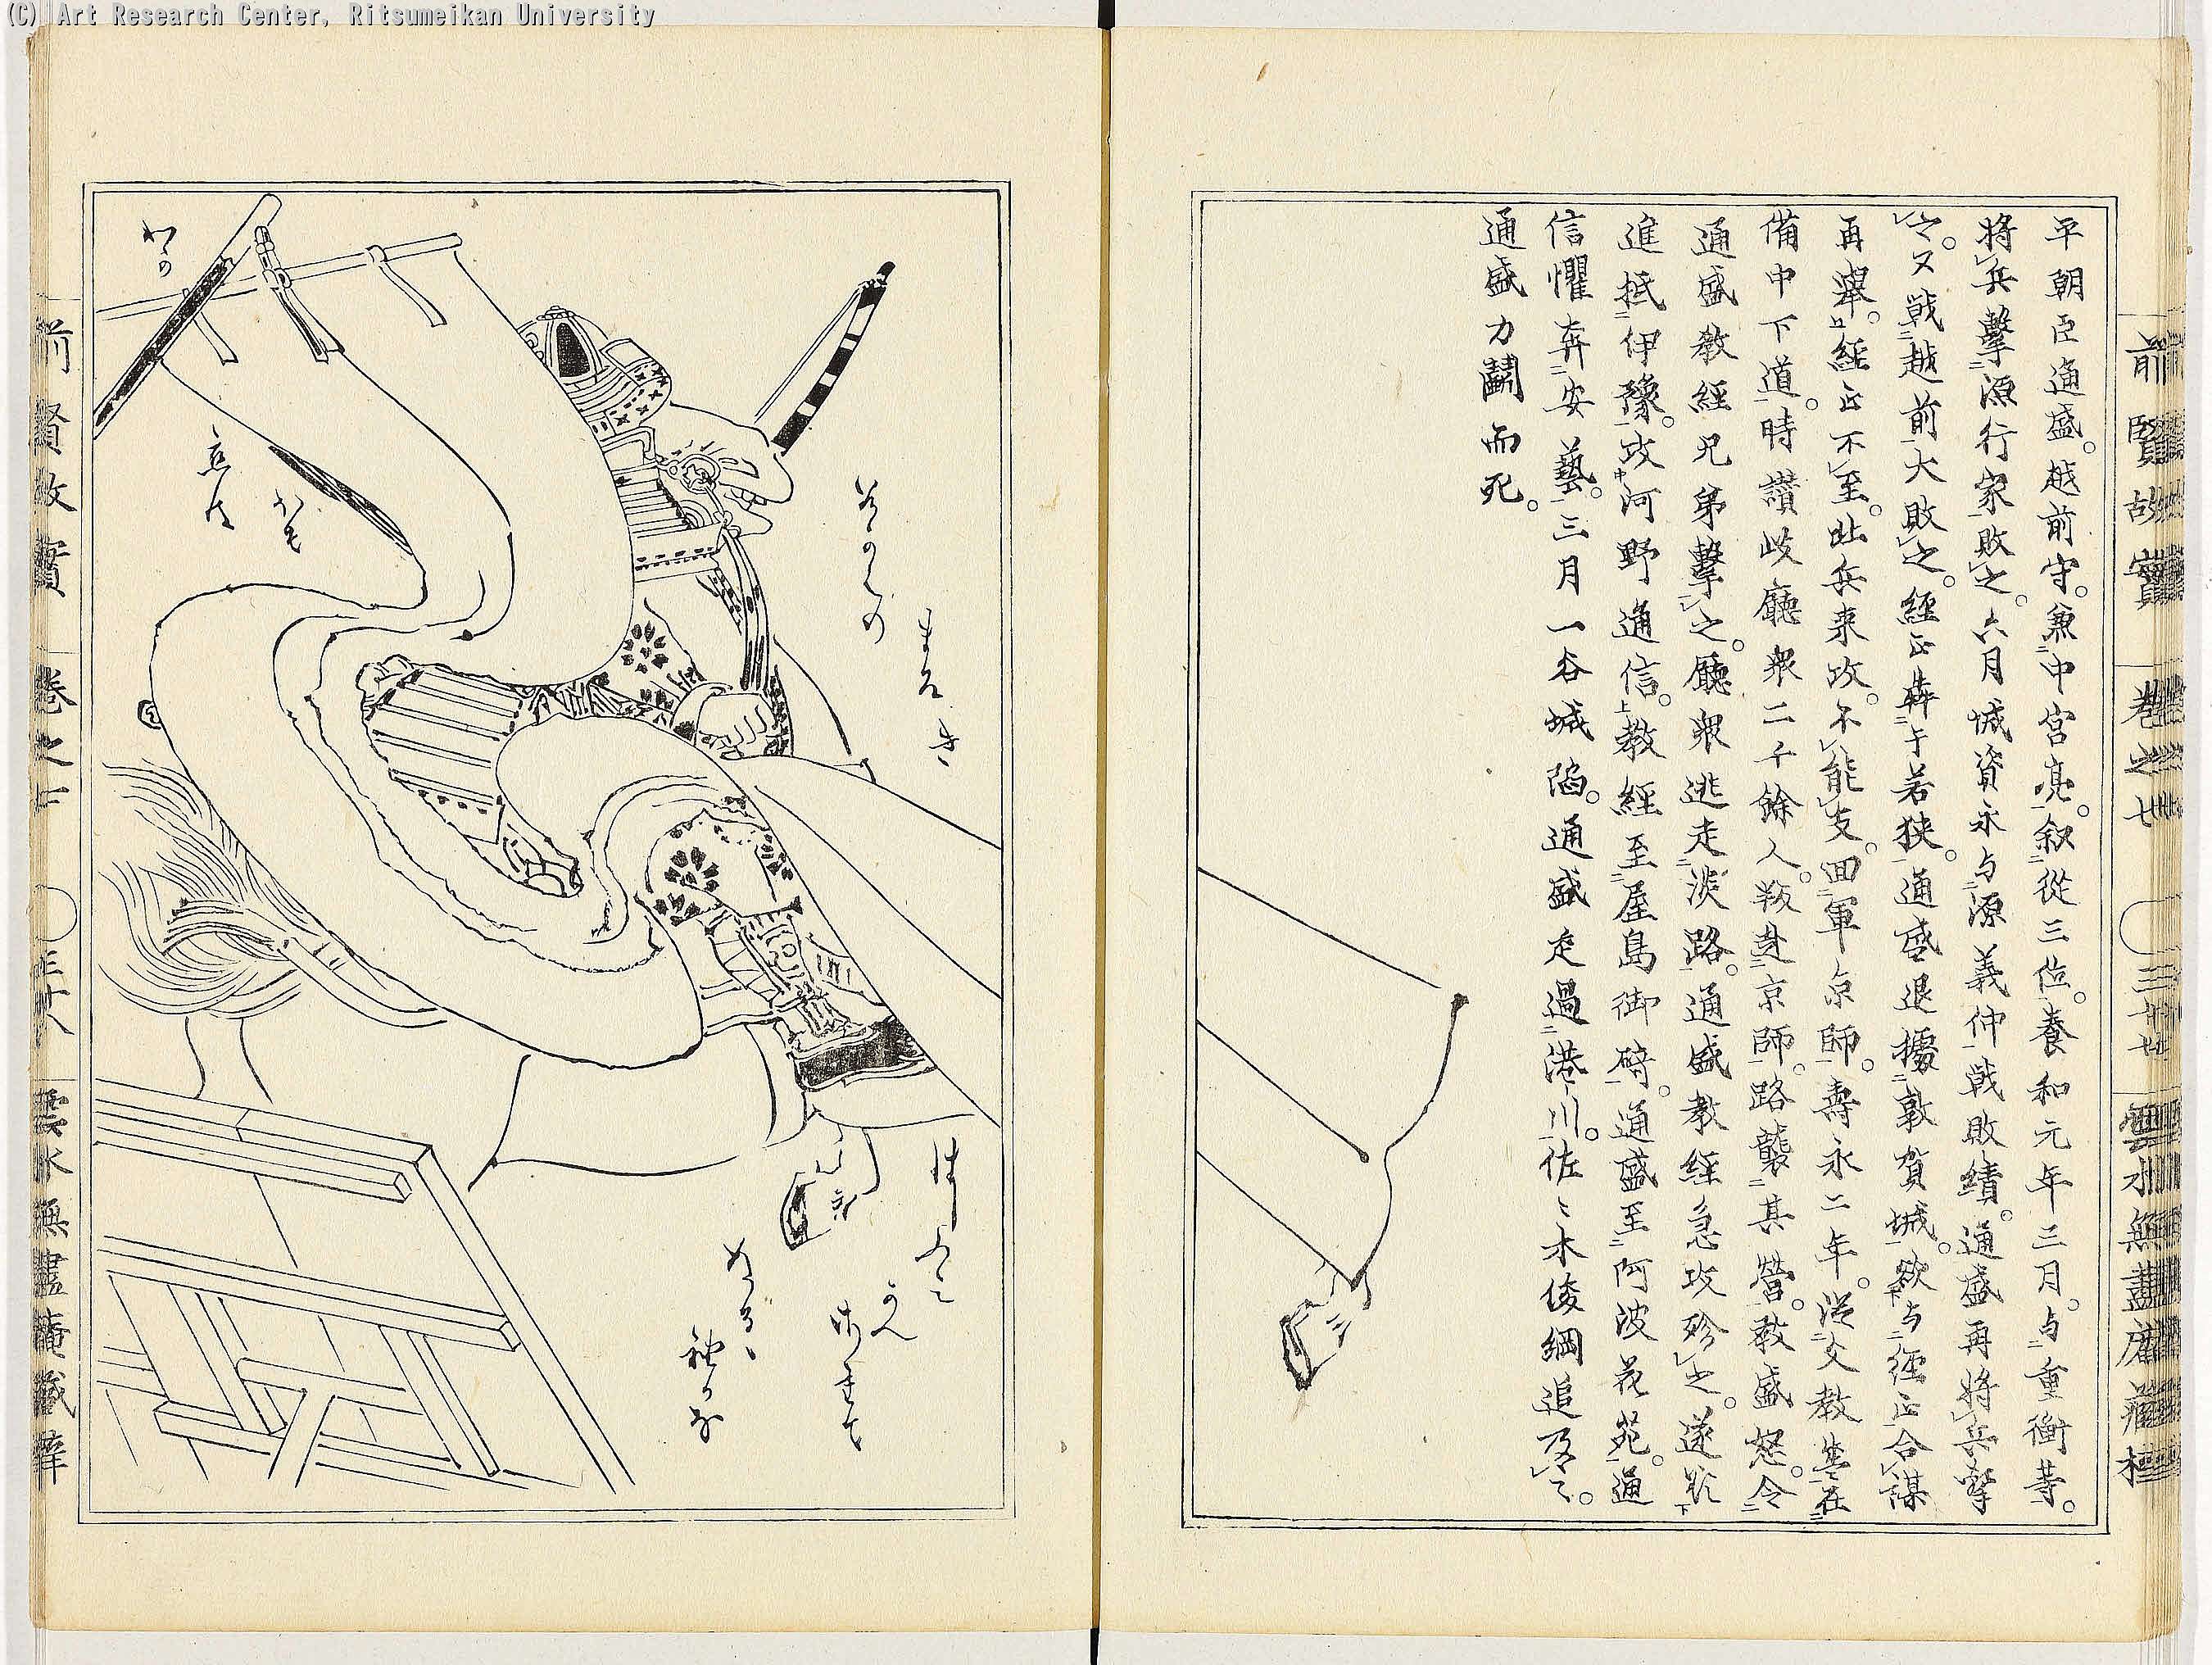 (C) Art Research Center, Ritsumeikan University
前賢故實 卷之七 三十七 雲水無盡庵藏梓
平朝臣通盛。越前守。兼中宮亮。叙從三位。養和元年三月。与重衡等。
將兵擊源行家敗之。六月城資永与源義仲戰敗績。通盛再將兵擊
之。又戰越前大敗之。經正軍于若狹。通盛退據敦賀城。欲与經正合謀
再舉。經正不至。北兵來攻。不能支。回軍京師。壽永二年。從父教盛在
備中下道。時讃岐廳衆二千餘人。叛赴京師。路襲其營。教盛怒。令
通盛教經兄弟擊之。廳衆逃走淡路。通盛教經急攻殄之。遂欲
進抵伊豫。攻河野通信。教經至屋島御碕。通盛至阿波花苑。通
信懼奔安藝。三月一谷城陷。通盛走過湊川。佐々木俊綱追及之。
通盛力鬪而死。
前賢故實 卷之七 三十八 雲水無盡庵藏梓
わかの